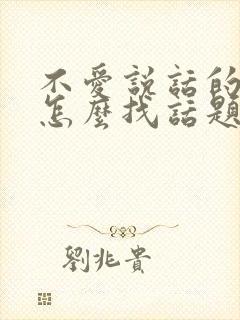 不愛説話的
怎麼找話題
劉兆貴